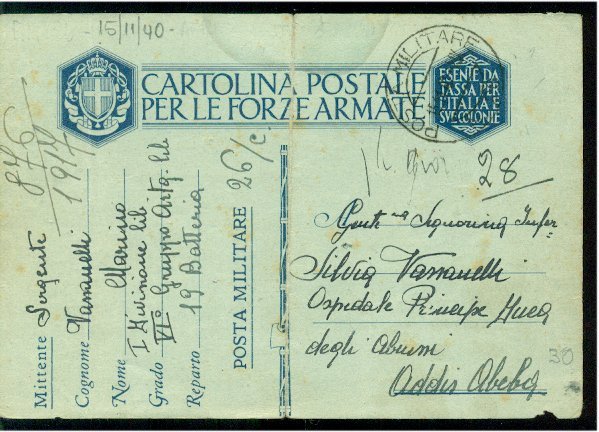 15/11/40
CARTOLINA POSTALE
PER LE FORZE ARMATE
ESENTE DA
TASSA PER
L'ITALIA E
SUE COLONIE
POSTA MILITARE
28
Mittente Sergente
Cognome Vannelli
Nome Marino
I Divisione lib
Grado VI° Gruppo Artg. lib
Reparto 19 Batteria
POSTA MILITARE 26/c.
Signorina Infer
Silvia Vannelli
Ospedale Principe Duca
degli Abruzzi
Addis Abeba
30